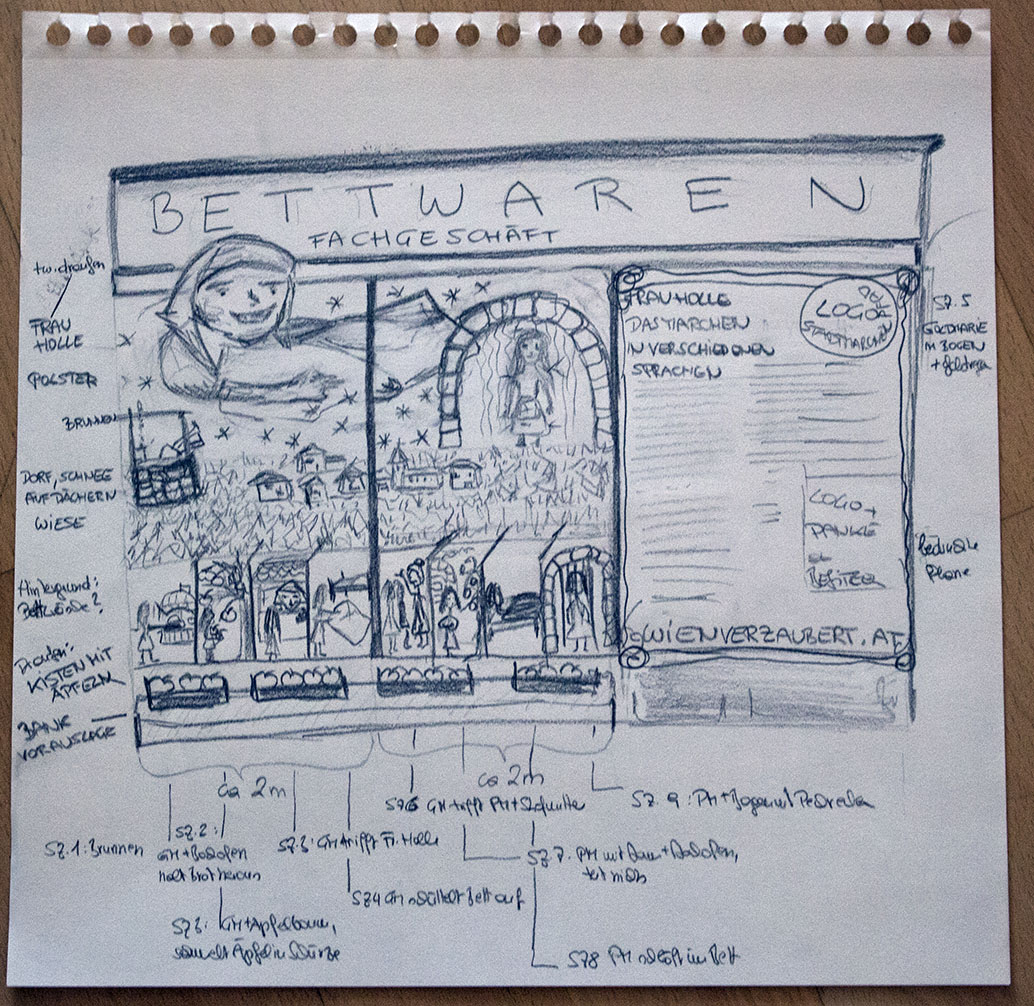 BETTWAREN
FACHGESCHÄFT
FRAU
HOLLE
POLSTER
BRUNNEN
DORF, SCHNEE
AUF DÄCHERN
WIESE
Hintergrund:
KISTEN MIT
ÄPFELN
BANK
VOR AUSLAGE
FRAU HOLLE
DAS MÄRCHEN
IN VERSCHIEDENEN
SPRACHEN
LOGO
STADTMÄRCHEN
LOGO +
DANKE
BESITZER
WIENVERZAUBERT.AT
SZ. 5
GOLDMARIE
IM BOGEN
+ Goldregen
bedruckte
Plane
ca 2m
ca 2m
SZ. 1: Brunnen
SZ. 2:
GM + Backofen
holt Brot heraus
SZ 3: GM + Apfelbaum,
sammelt Äpfel in Schürze
SZ 3: GM trifft Fr. Holle
SZ 4 GM schüttelt Bett auf
SZ 6 GM trifft PM + Stiefmutter
SZ 7. PM mit Baum + Backofen,
tut nichts
SZ 8 PM schläft im Bett
SZ. 9: PM + Bogen